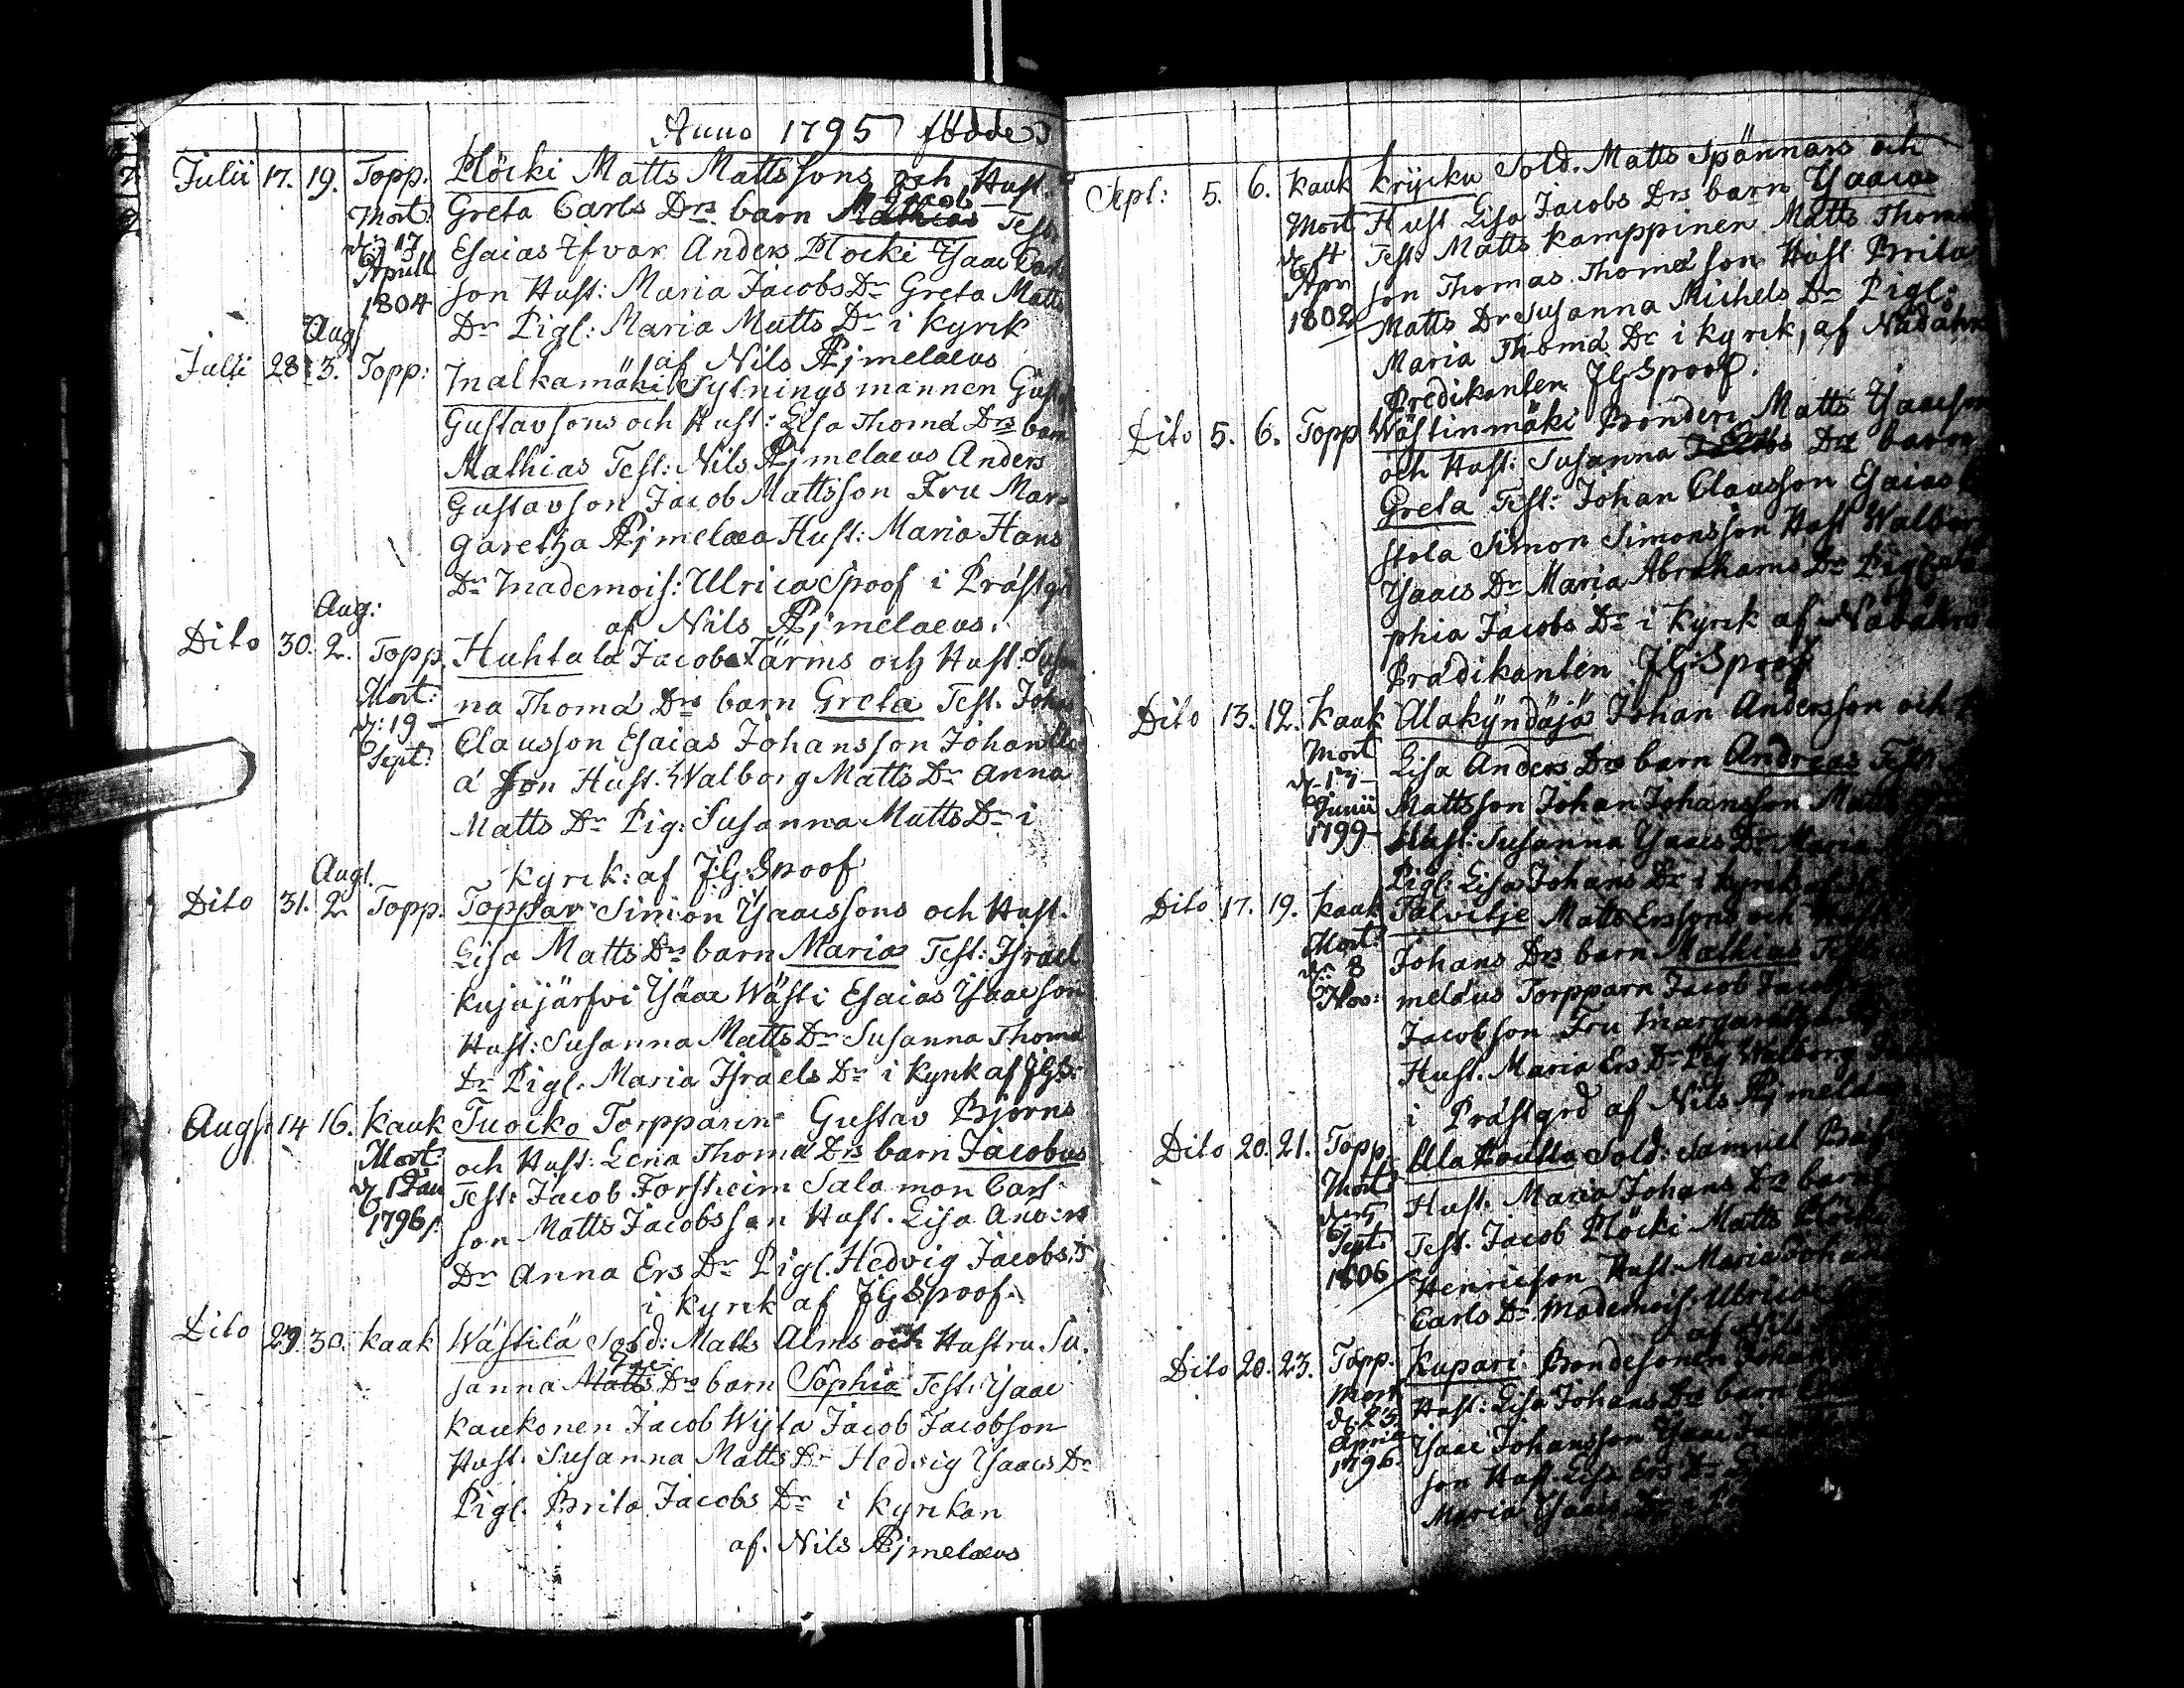 Anno 1795 födde
Julii 17. 19. Topp. Plöcki Matts Mattssons och Hust.
Mort. Greta Carls Drs barn Mathias Jacob Test:
d: 17 Esaias Ifvar Anders Plöcki Ysaac Carl
Aprill son Hust: Maria Jacobs Dr Greta Matts
1804 Dr Pigl: Maria Matts Dr i kyrck
af Nils Æjmelaeus
Aug
Julii 28 3. Topp: Inalkamäki Sytningsmannen Gust
Gustavsons och Hust: Lisa Thoma Drs barn
Mathias Test: Nils Æjmelaeus Anders
Gustavson Jacob Mattsson Fru Mar-
garetha Æjmelaea Hust: Maria Hans
Dr Mademois: Ulrica Spoof i Prästgd
af Nils Æjmelaeus.
Aug:
Dito 30. 2. Topp Huhtala Jacob Tärms och Hust: Susan
Mort: na Thoma Drs barn Greta Test. Johan
d: 19 Clausson Esaias Johansson Johan
Sept: Son Hust. Walborg Matts Dr Anna
Matts Dr Pig: Susanna Matts Dr i
kyrck: af J:G:Spoof
Augt.
Dito 31. 2. Topp. Toppar Simon Ysaacssons och Hust.
Lisa Matts Drs barn Maria Test: Israel
Kujajärfvi Ysaac Wästi Esaias Ysaacson
Hust: Susanna Matts Dr Susanna Thoma
Dr Pigl. Maria Israels Dr i kyrck af JGS:
Augst 14 16. Kauk Tuocko Torpparen Gustav Björns
Mort: och Hust: Lena Thoma Drs barn Jacobus
d. 1 Jan Test: Jacob Forssheim Salamon Carl
1796. son Matts Jacobsson Hust. Lisa Anders
Dr Anna Ers Dr Pigl. Hedvig Jacobs D
i kyrck af JGSpoof.
Dito 29. 30. kaak Wästilä Sold: Matts Alms och Hustru Su.
sanna Matts Drs barn Sophia Test: Ysaac
Kaukonen Jacob Wijta Jacob Jacobson
Hust. Susanna Matts Dr Hedvig Ysaacs Dr
Pigl. Brita Jacobs Dr i kyrckan
af. Nils Æjmelaeus
Sept: 5. 6. Kauk Krijcku Sold. Matts Spännars och
Mort Hust Lisa Jacobs Drs barn Ysaacas
d. 4 Test. Matts Kamppinen Matts Thoma
Apr son Thomas Thomason Hust Brita
1802 Matts Dr Susanna Michels Dr Pigl:
Maria Thoma Dr i kyrck, af Nådåhrs
Predikanten JGSpoof.
Dito 5. 6. Topp Wästinmäki Bonden Matts Ysaacson
och Hust: Susanna Jacobs Drs barn
Greta Test: Johan Clausson Esaias
stola Simon Simonsson Hust Walbor
Ysaacs Dr Maria Abrahams Dr Pigl
phia Jacobs Dr i kyrck af Nådåhrs
Prädikanten JG:Spoof
Dito 13. 12. kaak Alakyndäjä Johan Andersson och
Mort Lisa Anders Drs barn Andreas Test
Junii Mattsson Johan Johansson Matts
1799 Hust: Susanna Ysaacs Dr Maria
Pigl: Lisa Johans Dr i kyrck af
Dito 17. 19. kaak Talvitje Matts Erssons och Hust
Mort: Johans Drs barn Mathias Test
d: 8 melaus Torpparn Jacob Jacobs
Nov: Jacobson Fru Margaretha
Hust. Maria Ers Dr Pig Walborg
i Prästgrd af Nils Æjmelaeus
Dito 20. 21. Topp. Ala Soldt: Samuel
Mort Hust. Maria Johans Drs barn
Sept. Test. Jacob Plöcki Matts Plöcki
1806 Henricson Hust. Maria Johans
Carls Dr Mademois: Ulrica
af Nils
Dito 20. 23. Topp. Kupari Bondesonen Johan
Mort Hust: Lisa Johans Drs barn
d: 23. Ysaac Johansson Ysaac
April son Hust. Lisa Ers Dr
1796. Maria Ysaacs Dr